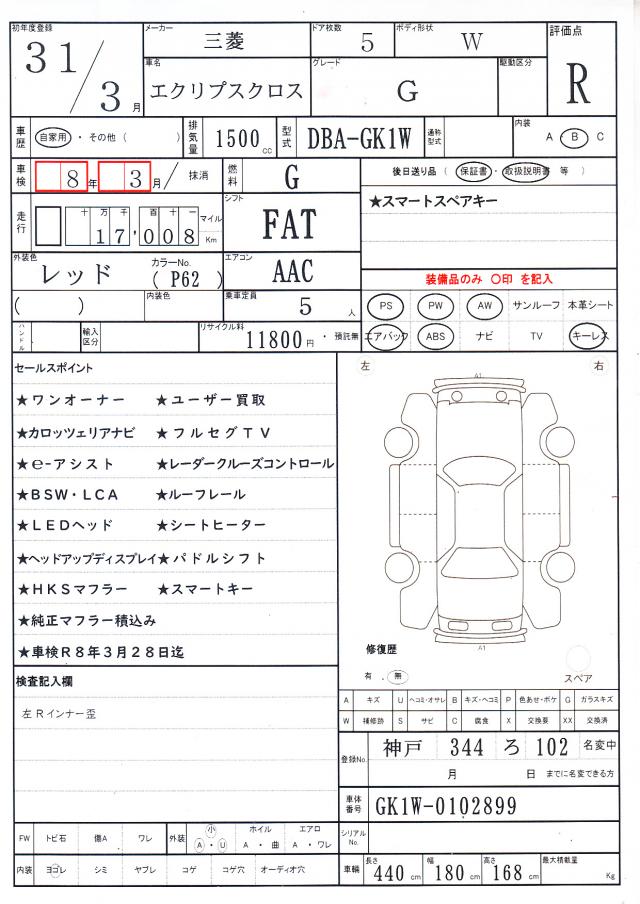 初年度登録 31/3月
メーカー 三菱 ドア枚数 5 ボディ形状 W 評価点 R
車名 エクリプスクロス グレード G 駆動区分
車歴 自家用・その他( ) 排気量 1500cc 型式 DBA-GK1W 通称型式 内装 A・B C
車検 8年 3月/ 抹消 燃料 G 後日送り品(保証書・取扱説明書 等)
走行 十万千百十一 17,008 マイル Km シフト FAT ★スマートスペアキー
外装色 レッド カラーNo. (P62) エアコン AAC 装備品のみ 〇印 を記入
( ) 内装色 乗車定員 5人 PS PW AW サンルーフ 本革シート
ハンドル 輸入区分 リサイクル料 11800円・預託無 エアバック ABS ナビ TV キーレス
セールスポイント
★ワンオーナー ★ユーザー買取
★カロッツェリアナビ ★フルセグTV
★e-アシスト ★レーダークルーズコントロール
★BSW・LCA ★ルーフレール
★LEDヘッド ★シートヒーター
★ヘッドアップディスプレイ★パドルシフト
★HKSマフラー ★スマートキー
★純正マフラー積込み
★車検R8年3月28日迄
検査記入欄
左Rインナー歪
左 右
A1
A1
修復歴
有 . 無
スペア
A キズ U ヘコミ・オサレ B キズ・ヘコミ P 色あせ・ボケ G ガラスキズ
W 補修跡 S サビ C 腐食 X 交換要 XX 交換済
登録No. 神戸 344 ろ 102 名変中
月 日 までに名変できる方
車体番号 GK1W-0102899
シリアルNo.
FW トビ石 傷A ワレ 外装 小 A・U ホイル A・曲 エアロ A・ワレ
内装 ヨゴレ シミ ヤブレ コゲ コゲ穴 オーディオ穴
車輌 長さ 440cm 幅 180cm 高さ 168cm 最大積載量 Kg